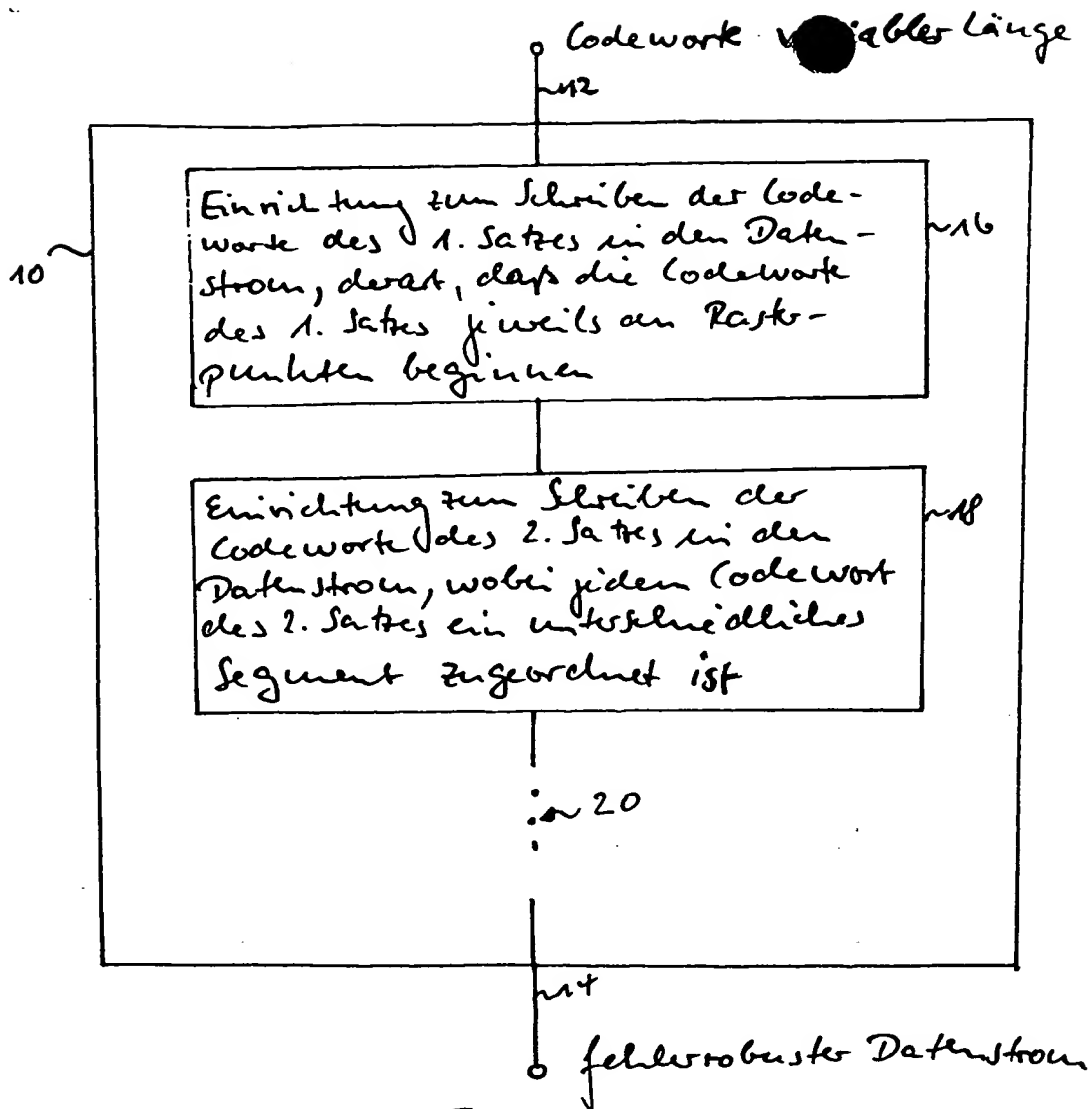 Codeworte variabler Länge
12
10
Einrichtung zum Schreiben der Code-
worte des 1. Satzes in den Daten-
strom, derart, daß die Codeworte
des 1. Satzes jeweils an Raster-
punkten beginnen
16
Einrichtung zum Schreiben der
Codeworte des 2. Satzes in den
Datenstrom, wobei jedem Codewort
des 2. Satzes ein unterschiedliches
Segment zugeordnet ist
18
20
14
fehlerrobuster Datenstrom